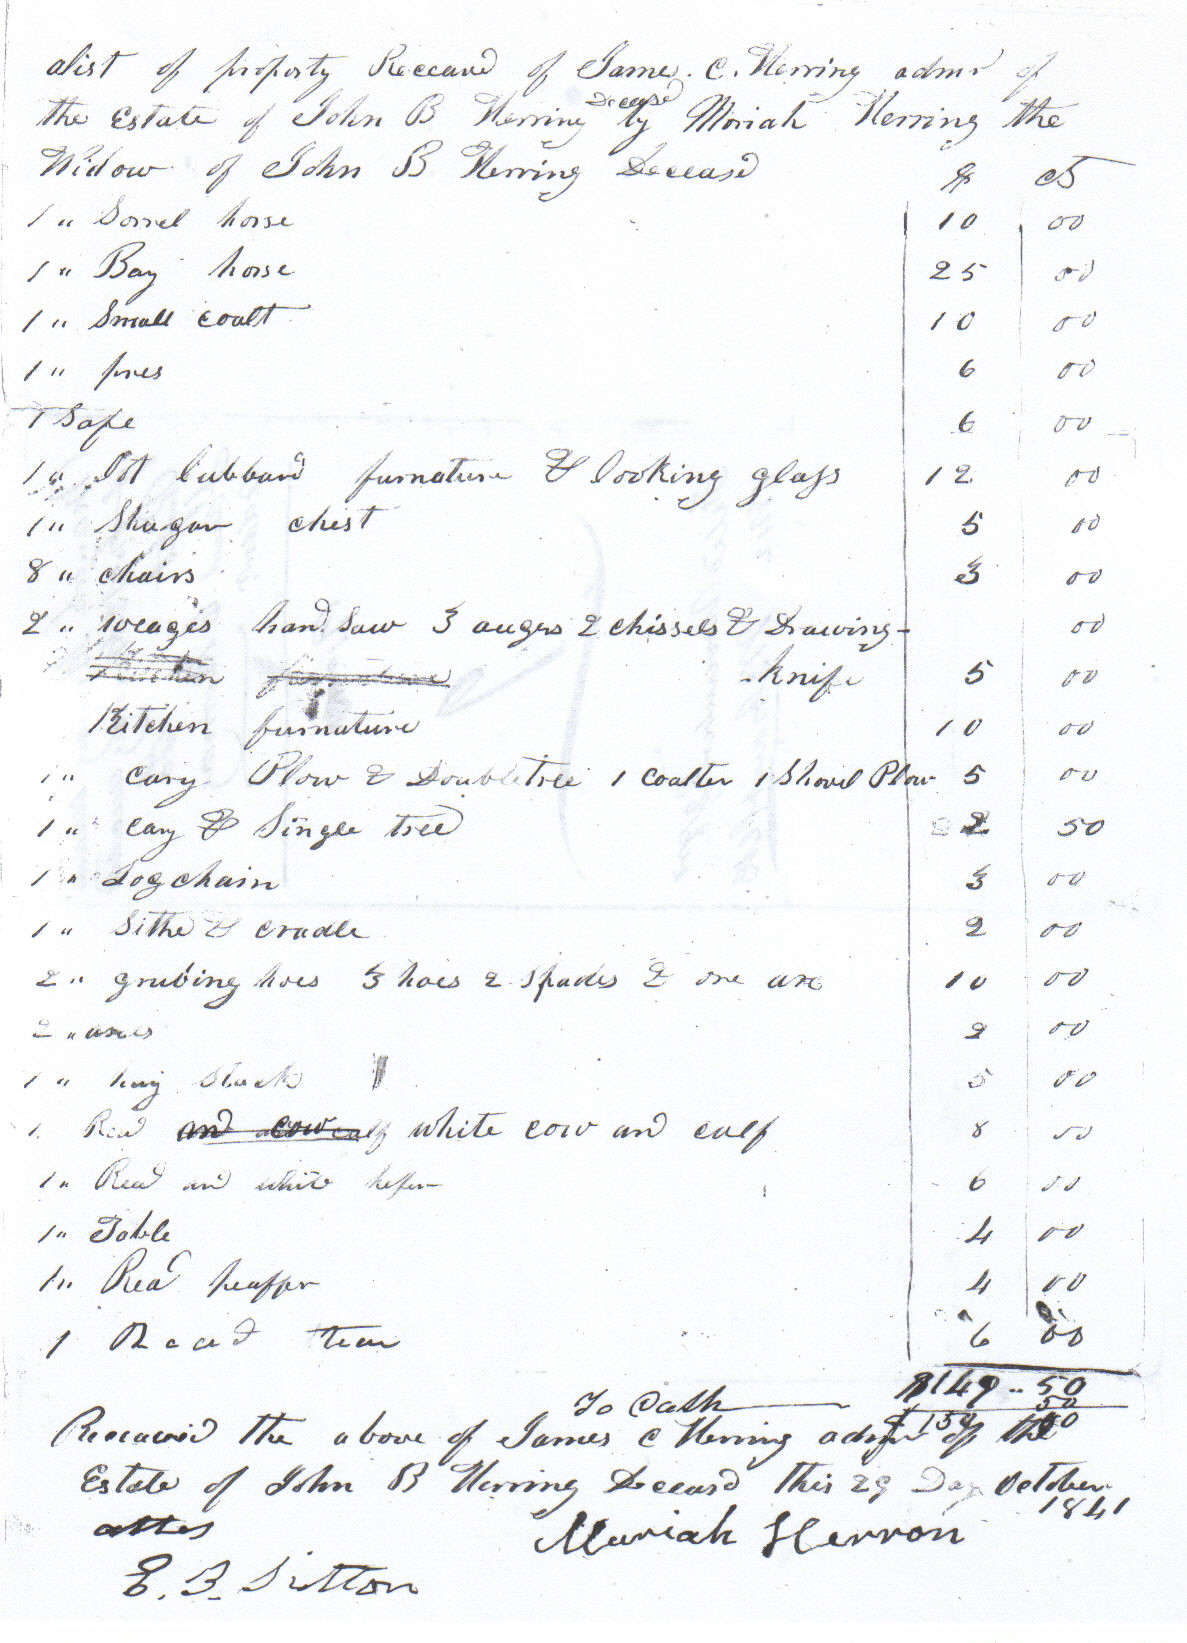 alist of property Receavd of James. C. Herring admr of
the Estate of John B Herring Deceasd by Moriah Herring the
Widow of John B Herring Deceasd $ cts
1 " Sorrel horse 10 00
1 " Bay horse 25 00
1 " Small coalt 10 00
1 " pres 6 00
1 Safe 6 00
1 " Lot Cubbard furnature & looking glass 12 00
1 " Shugar chest 5 00
8 " chairs 3 00
2 " weages hand Saw 3 augers 2 chissels & Drawing- 00
Kitchen furnature -knife 5 00
Kitchen furnature 10 00
1 " cary Plow & Doubletree 1 coalter 1 Shovel Plow 5 00
1 " cary & Single tree 2 50
1 " Logchain 3 00
1 " Sithe & cradle 2 00
2 " grubing hoes 3 hoes 2 Spades & one axe 10 00
2 " axes 2 00
1 " hay Stack 5 00
1. Read and cow calf white cow and calf 8 50
1 " Read and white hefer 6 00
1 " Table 4 00
1 " Read heaffer 4 00
1 Read 6 00
$149 .. 50
To Cash 50
Receaved the above of James C Herring admr of the
Estate of John B Herring Deceasd this 29 Day October
1841
attes Mariah Herron
E. B. Sitton